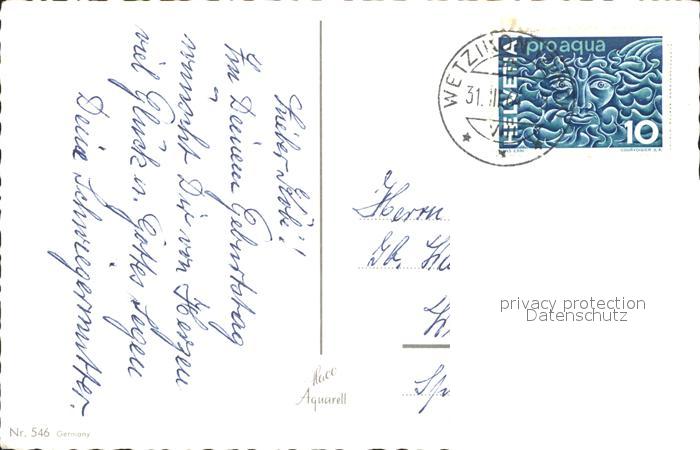 Lieber Köbi!
Zu Deinem Geburtstag
wünscht Dir von Herzen
viel Glück u. Gottes Segen
Deine Schwiegermutter.
WETZI
31. III
HELVETIA
pro aqua
10
COURVOISIER S.A.
Herrn
Jb.
privacy protection
Datenschutz
Raco
Aquarell
Nr. 546 Germany